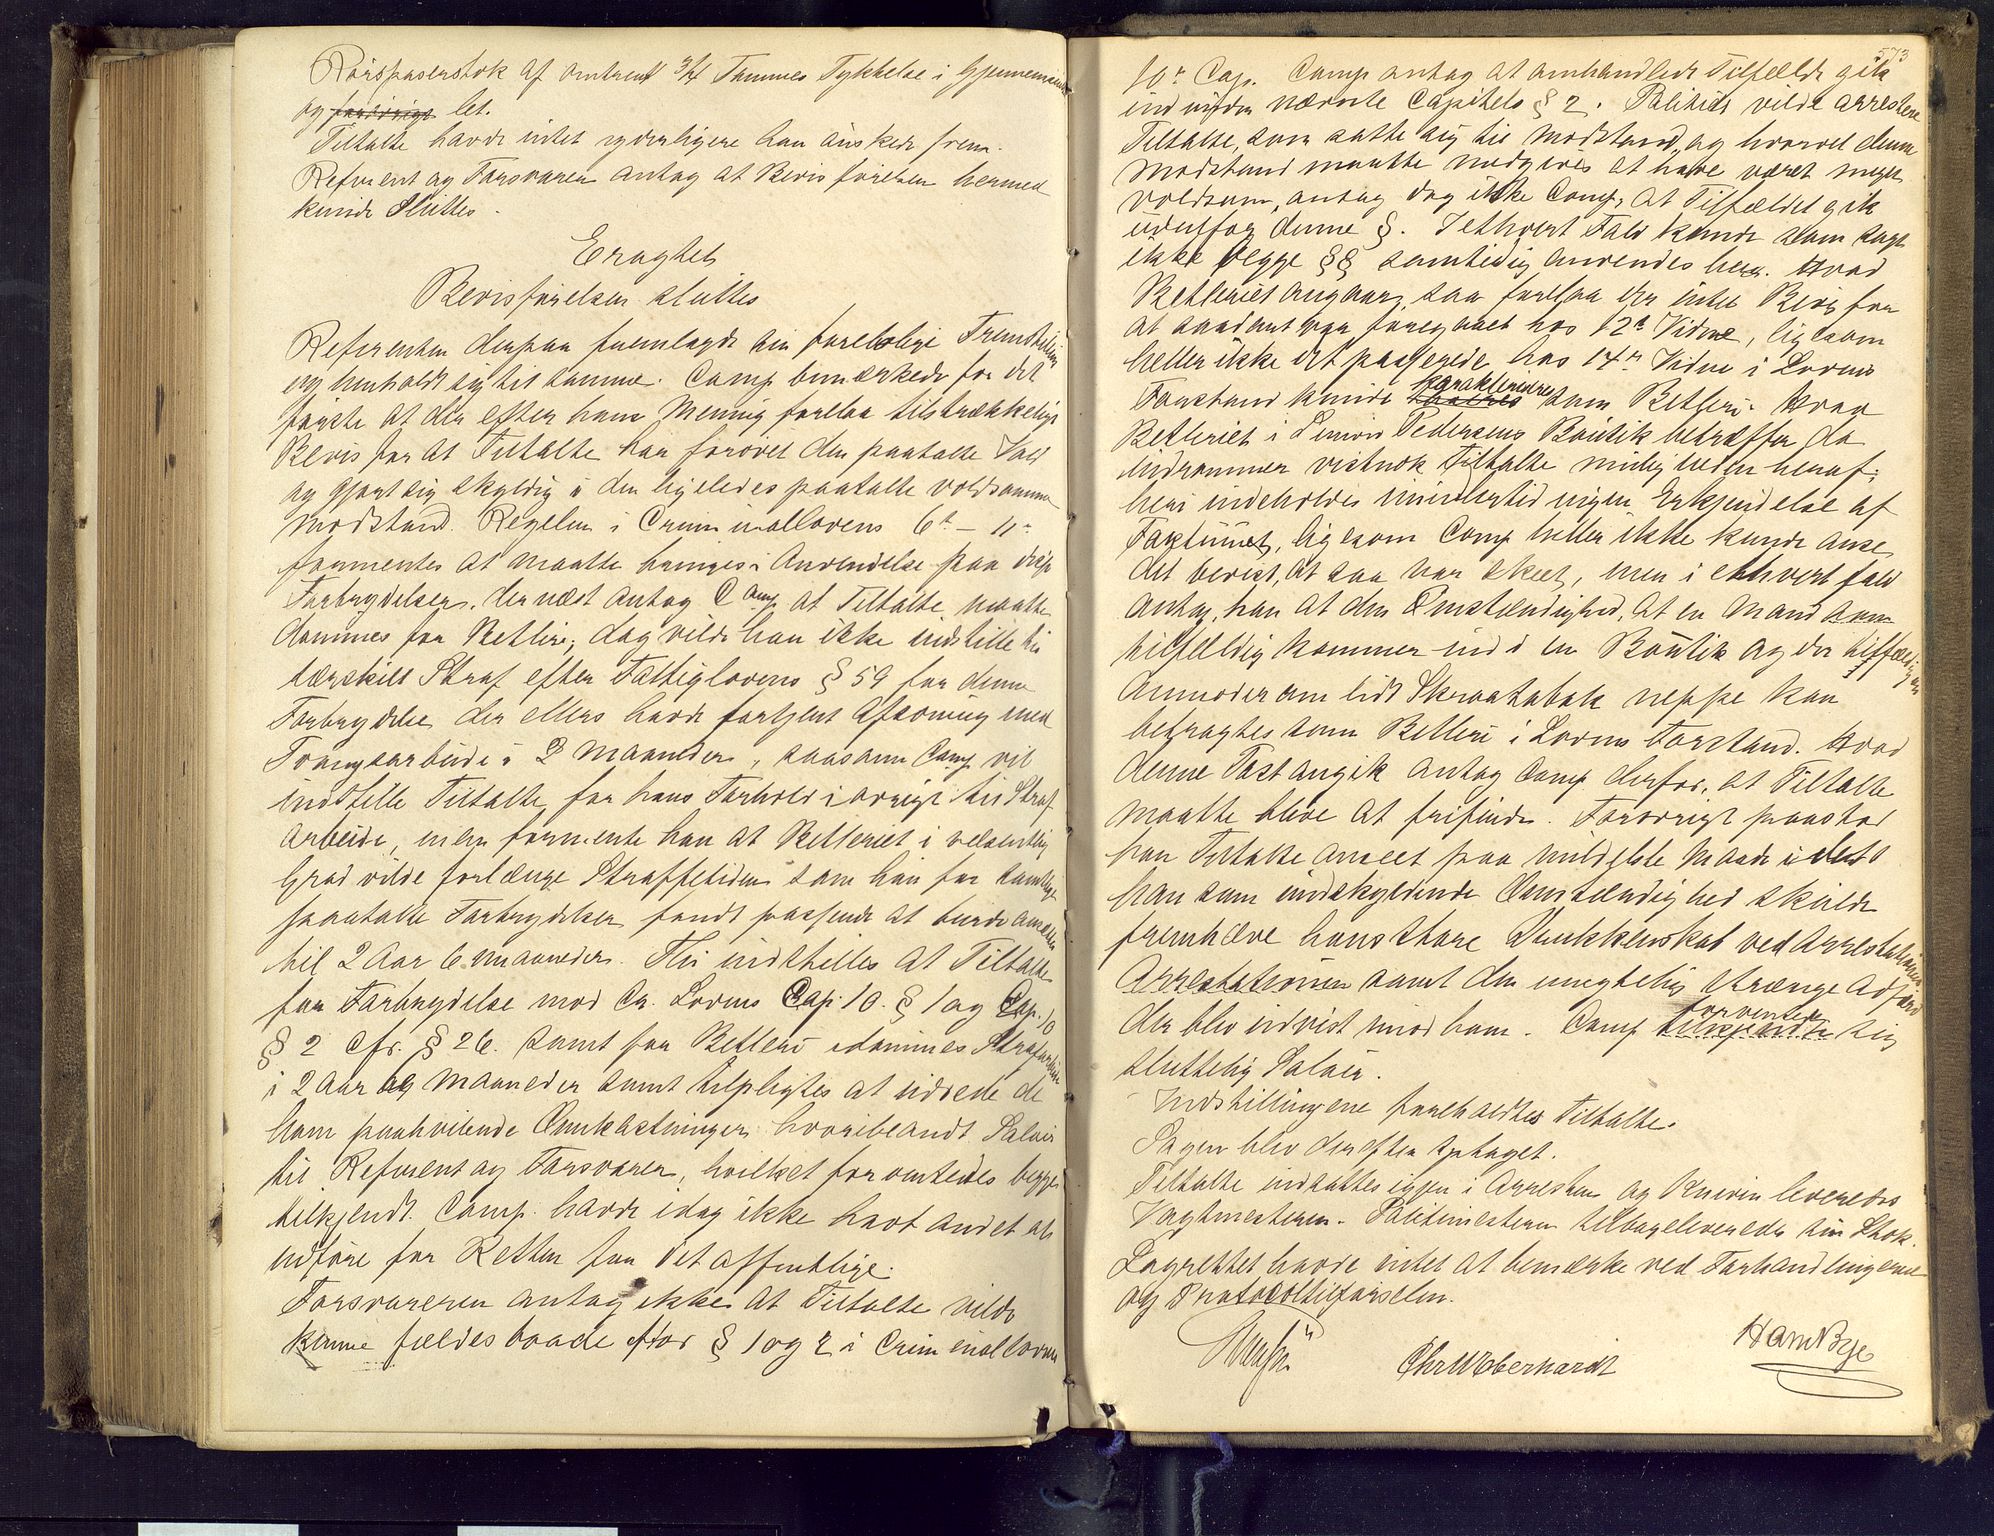 Rørspaserstok af omtrent 3/4 Tommes Tykkelse i Gjennemsnit
og forøvrigt let.
Tiltalte havde intet yderligere han ønskede frem.
Referent og Forsvarer antog at Bevisførelsen hermed
kunde sluttes.
Eragtet
Bevisførelsen sluttes
Referenten derpaa fremlagde sin foreløbige Fremstilling
og henholdt sig til samme. Comp bemærkede for det
første at der efter hans Mening forelaa tilstrækkeligt
Bevis for at Tiltalte har forøvet den paatalte Vold
og gjort sig skyldig i den ligeledes paatalte voldsomme
Modstand. Regelen i Criminallovens 6t – 11
formentes at maatte bringes i Anvendelse paa disse
Forbrydelser. dernæst antog Comp at Tiltalte maatte
dømmes for Betleri; dog vilde han ikke indstille til
særskilt Straf efter Fattiglovens § 59 for denne
Forbrydelse der ellers havde fortjent Afsoning med
Tvangsarbeide i 3 Maaneder, saasom Comp vil
indstille Tiltalte for hans Forhold i øvrigt til Straf-
arbeide, men formente han at Betleriet i væsentlig
Grad vilde forlænge Straffetiden som han for samtlige
paatalte Forbrydelser fandt passende at burde ansættes
til 2 Aar 6 maaneder. Thi indstilles at Tiltalte
for Forbrydelse mod Cr. Lovens Cap 10. § 1 og Cap. 10
§ 2 cfr. § 26. samt for Betleri idømmes Strafarbeide
i 2 Aar og Maaneder samt tilpligtes at udrede de
ham paahvilende Omkostninger hvoriblandt Salær
til Referent og Forsvarer, hvilket forventedes begge
tilkjendt. Comp. havde idag ikke havt andet at
udføre for Retten for det offentlige.
Forsvareren antog ikke at Tiltalte vilde
kunne fældes baade efter § 1 og 2 i Criminallovens
573
10de Cap. Comp antog at omhandlede Tilfælde gik
ind under nævnte Capitels § 2. Politiet vilde arrestere
Tiltalte, som satte sig til Modstand, og hvorvel denne
Modstand maatte medgives at have været meget
voldsom, antog dog ikke Comp, at Tilfældet gik
udenfor denne §. I ethvert Fald kunde som sagt
ikke begge §§ samtidig anvendes her. Hvad
Betleriet angaar, saa forelaa der intet Bevis for
at saadant var foregaaet hos 12te Vidne, ligesom
heller ikke det passerede hos 14de Vidne i Lovens
Forstand kunde karakteriseres som Betleri. Hvad
Betleriet i Simon Pedersens Boutik betræffer da
indrømmer vistnok Tiltalte muligheden heraf;
heri indeholdes imidlertid ingen Erkjendelse af
Factumet, ligesom Comp heller ikke kunde anse
det bevist, at saa var skeet, men i ethvert fald
antog han at den Omstændighed, at en Mand som
tilfældig kommer ind i en Boutik og der tilfældigvis
anmoder om lidt Skraatobak neppe kan
betragtes som Betleri i Lovens Forstand. Hvad
denne Post angik antog Comp derfor, at Tiltalte
maatte blive at frifinde. Forøvrigt paastod
han Tiltalte anseet paa mildeste Maade idet
han som undskyldende Omstændighed skulde
fremhæve hans store Drukkenskab ved Arrestationen
Arrestationen samt den unegtelig strænge Adfærd
der blev udvist mod ham. Comp forventede sig
sluttelig Salær.
Indstillingene foreholdtes Tiltalte.
Sagen blev derefter optaget.
Tiltalte indsattes igjen i Arresten og Kniven leveredes
Vagtmesteren. Politimesteren tilbageleverede sin Stok.
Lagrettet havde intet at bemærke ved Forhandlingerne
og Protocoltilførselen.
Chr W Eberhardt
Ham Bye